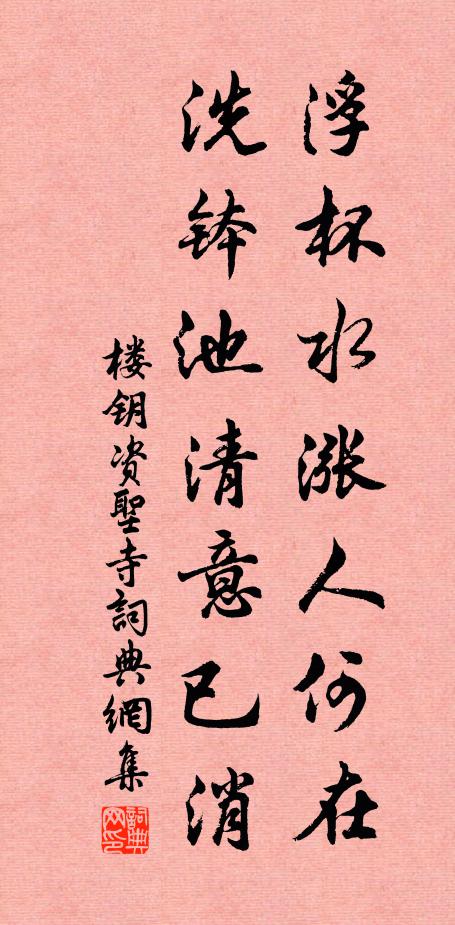 浮杯水涨人何在
洗钵池清意已消
楼钥资聖寺詞典網集
詞典網印